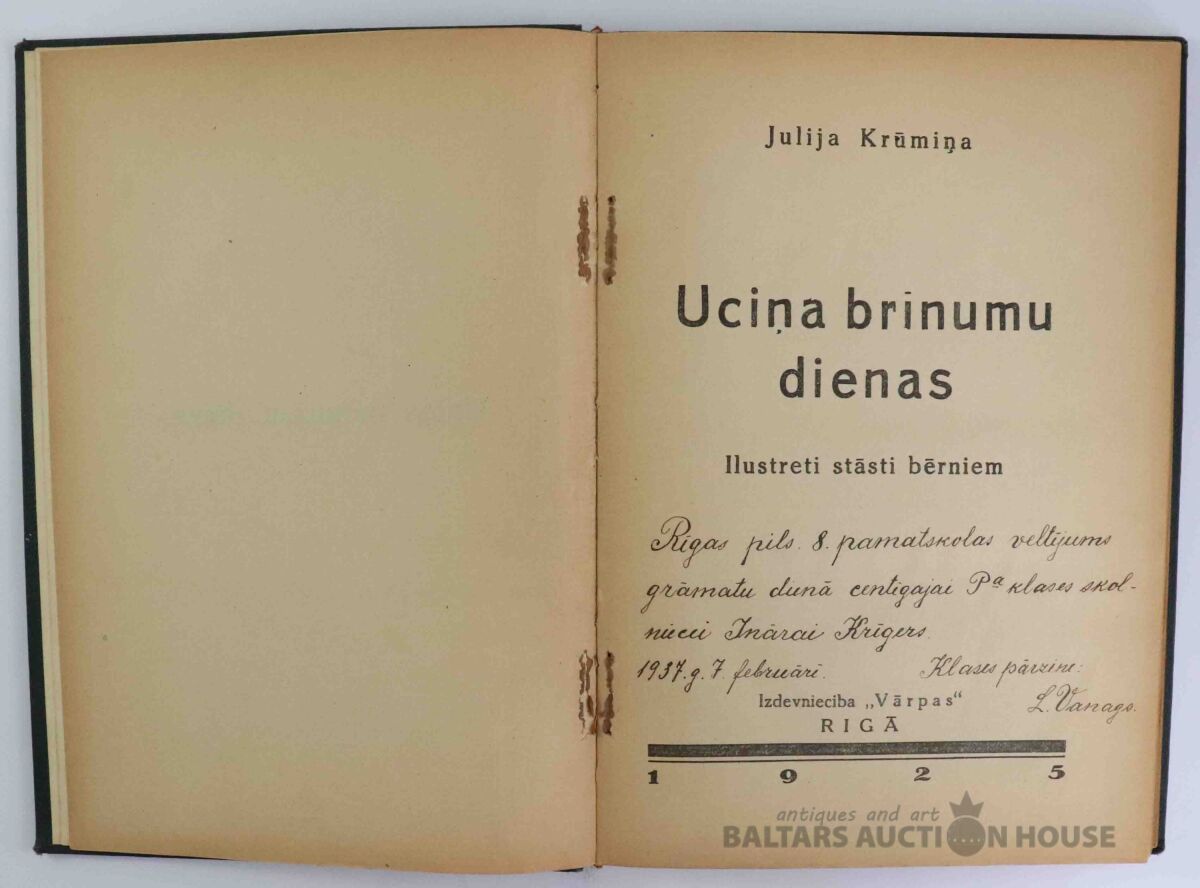 Julija Krūmiņa
Uciņa brīnumu
dienas
Ilustreti stāsti bērniem
Rīgas pils. 8. pamatskolas veltījums
grāmatu dienā centīgajai Pa klases skol-
niecei Inārai Krīgers.
1937. g. 7. februārī. Klases pārzine:
L. Vanags.
Izdevniecība „Vārpas"
RIGĀ
1 9 2 5
antiques and art
BALTARS AUCTION HOUSE